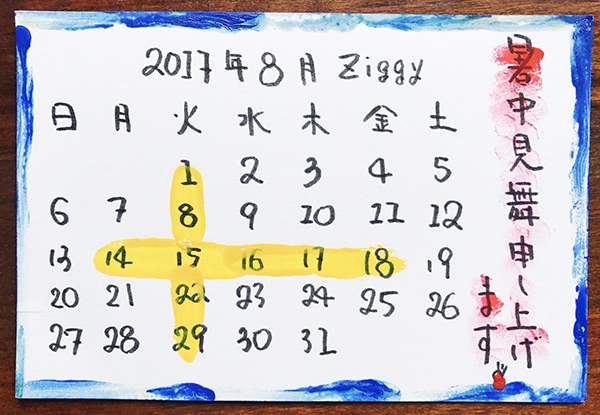 2017年8月 Ziggy
日 月 火 水 木 金 土
1 2 3 4 5
6 7 8 9 10 11 12
13 14 15 16 17 18 19
20 21 22 23 24 25 26
27 28 29 30 31
暑中見舞申し上げ
ます